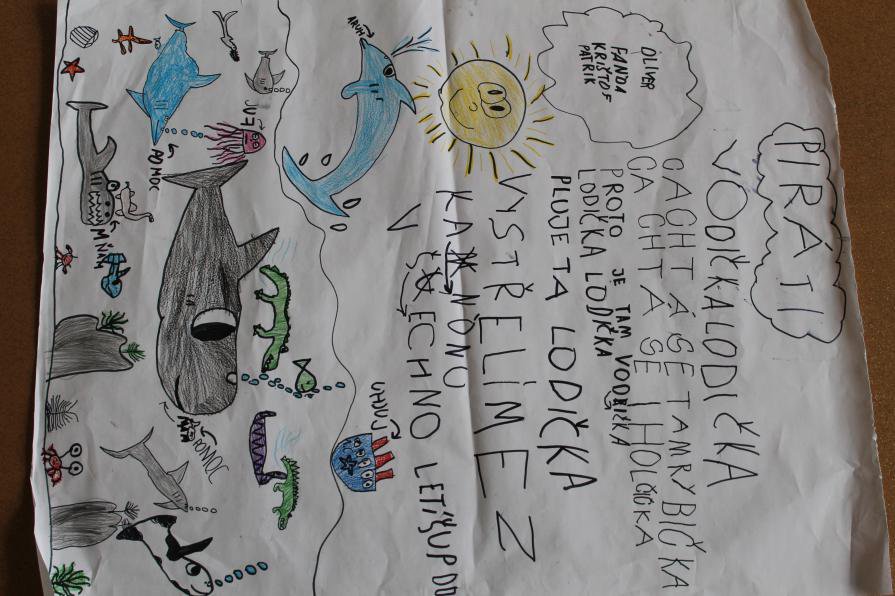 PIRÁTI
OLIVER
FANDA
KRISTOF
PATRIK
VODIČKALODIČKA
CACHTÁ SE TAM RYBIČKA
CACHTÁ SE I HOLČIČKA
PROTO JE TAM VODIČKA
LODIČKA LODIČKA
PLUJE TA LODIČKA
VYSTŘELÍME Z
KANÓNU
VŠECHNO LETÍ ŠUP DO
UHUUJ
JUJ
POMOC
MŇAM
POMOC